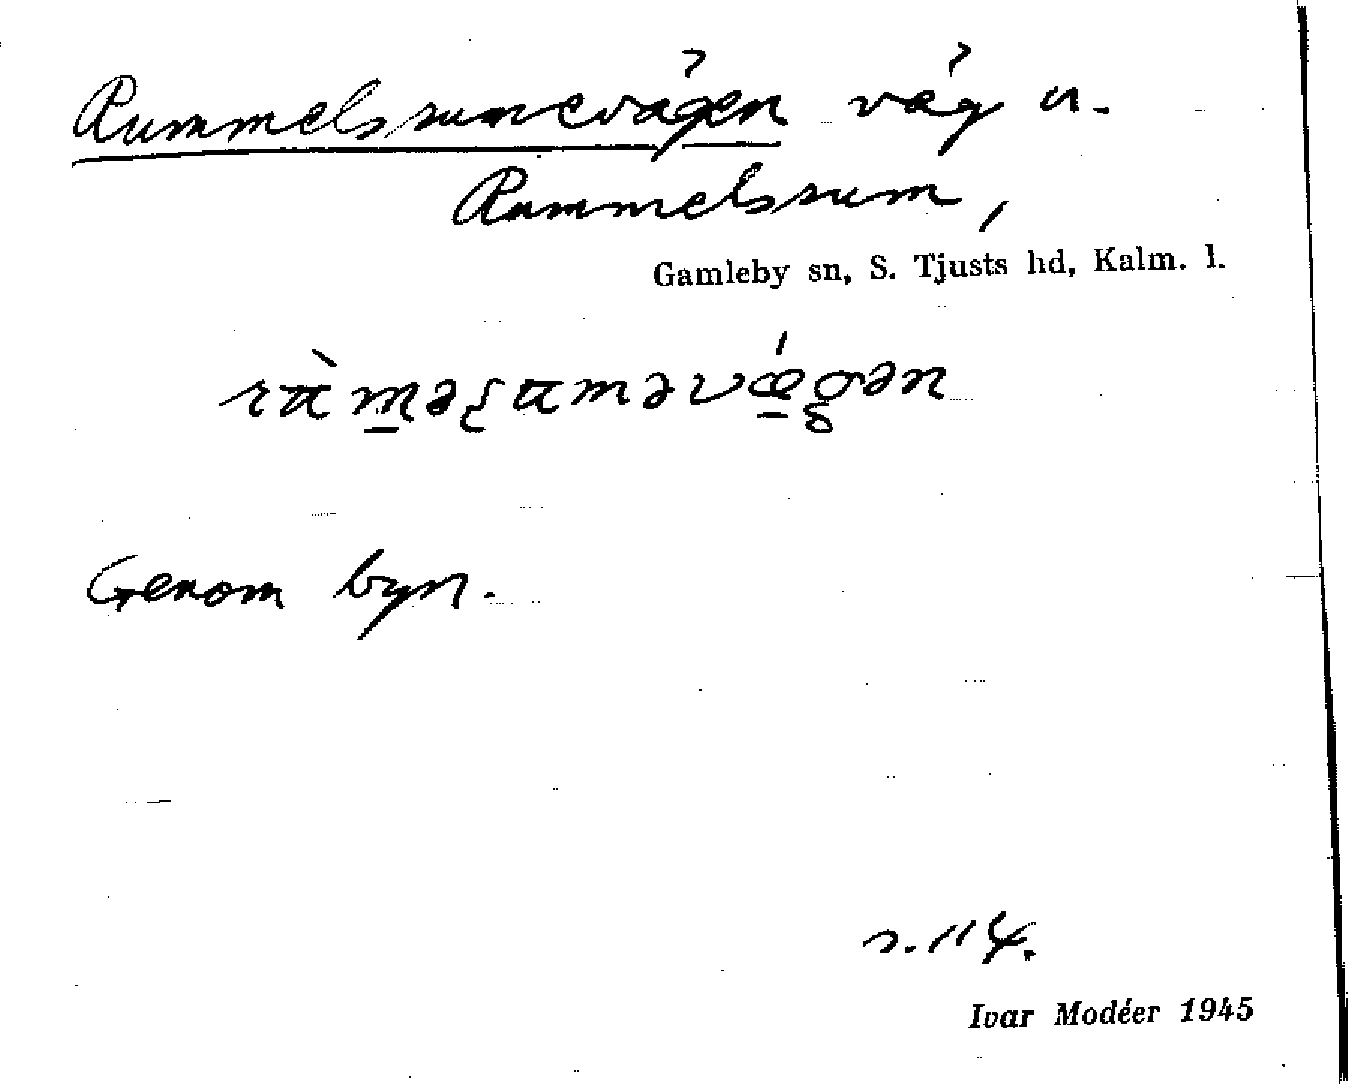 Rummelsrumevägen väg u.
Rummelsrum,
Gamleby sn, S. Tjusts hd, Kalm. l.
Genom byn.
s. 114.
Ivar Modéer 1945